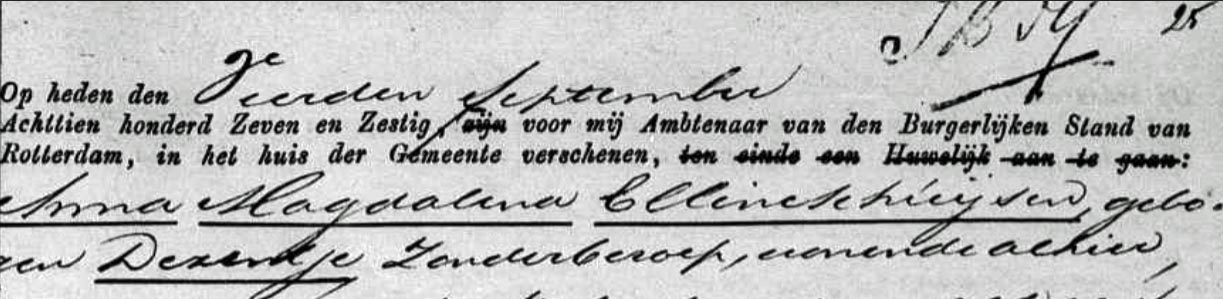 25
Op heden den Veerden September
Achttien honderd Zeven en Zestig, zijn voor mij Ambtenaar van den Burgerlijken Stand van
Rotterdam, in het huis der Gemeente verschenen, ten einde een Huwelijk aan te gaan:
Anna Magdalena Ellinckhuijsen, gebo-
ren Dezentje Zonder beroep, wonende alhier,